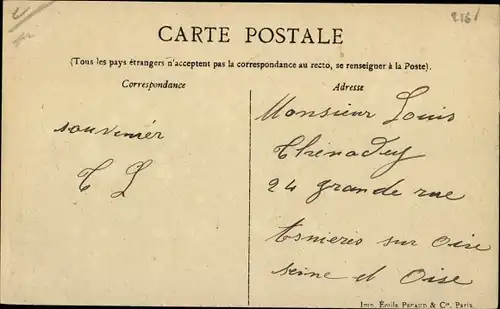 216
CARTE POSTALE
(Tous les pays étrangers n'acceptent pas la correspondance au recto, se renseigner à la Poste).
Correspondance
souvenir
T L
Adresse
Monsieur Louis
24 grande rue
Asnieres sur Oise
Seine et Oise
Imp. Émile Pécaud & Cie, Paris.